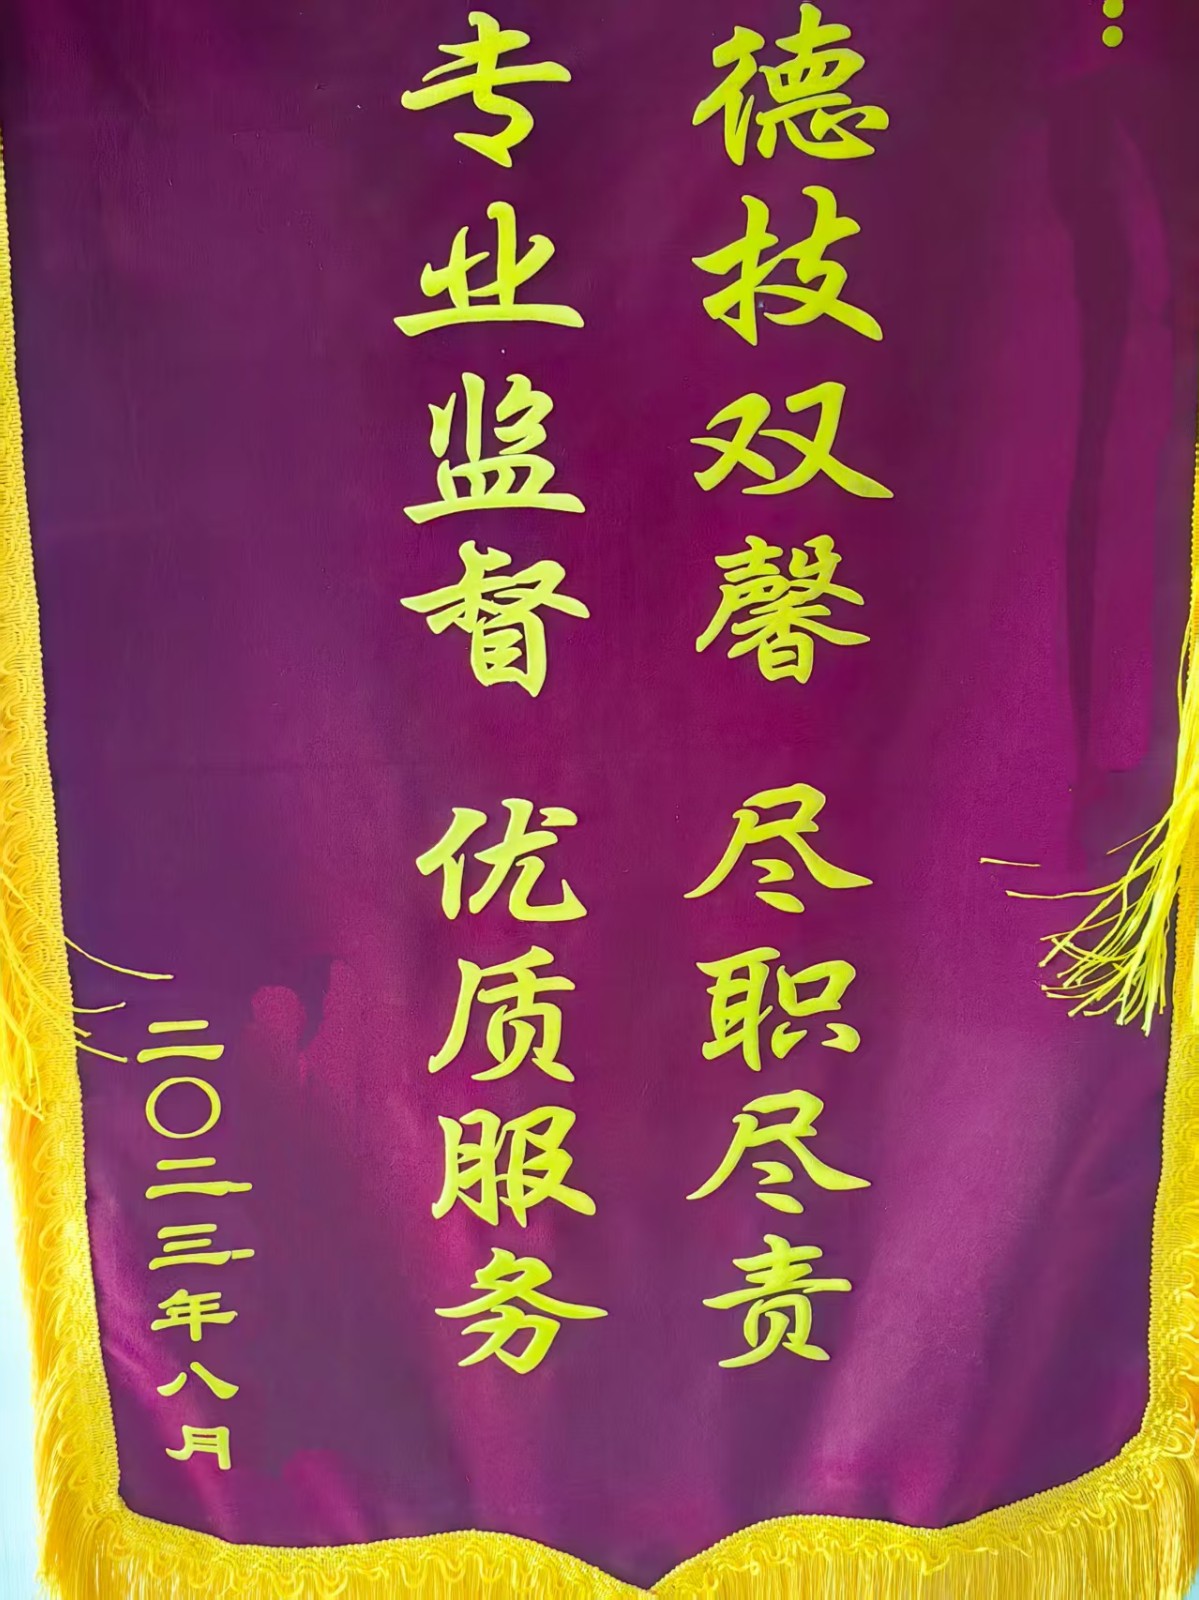 德技双馨 尽职尽责
专业监督 优质服务
二〇二三年八月